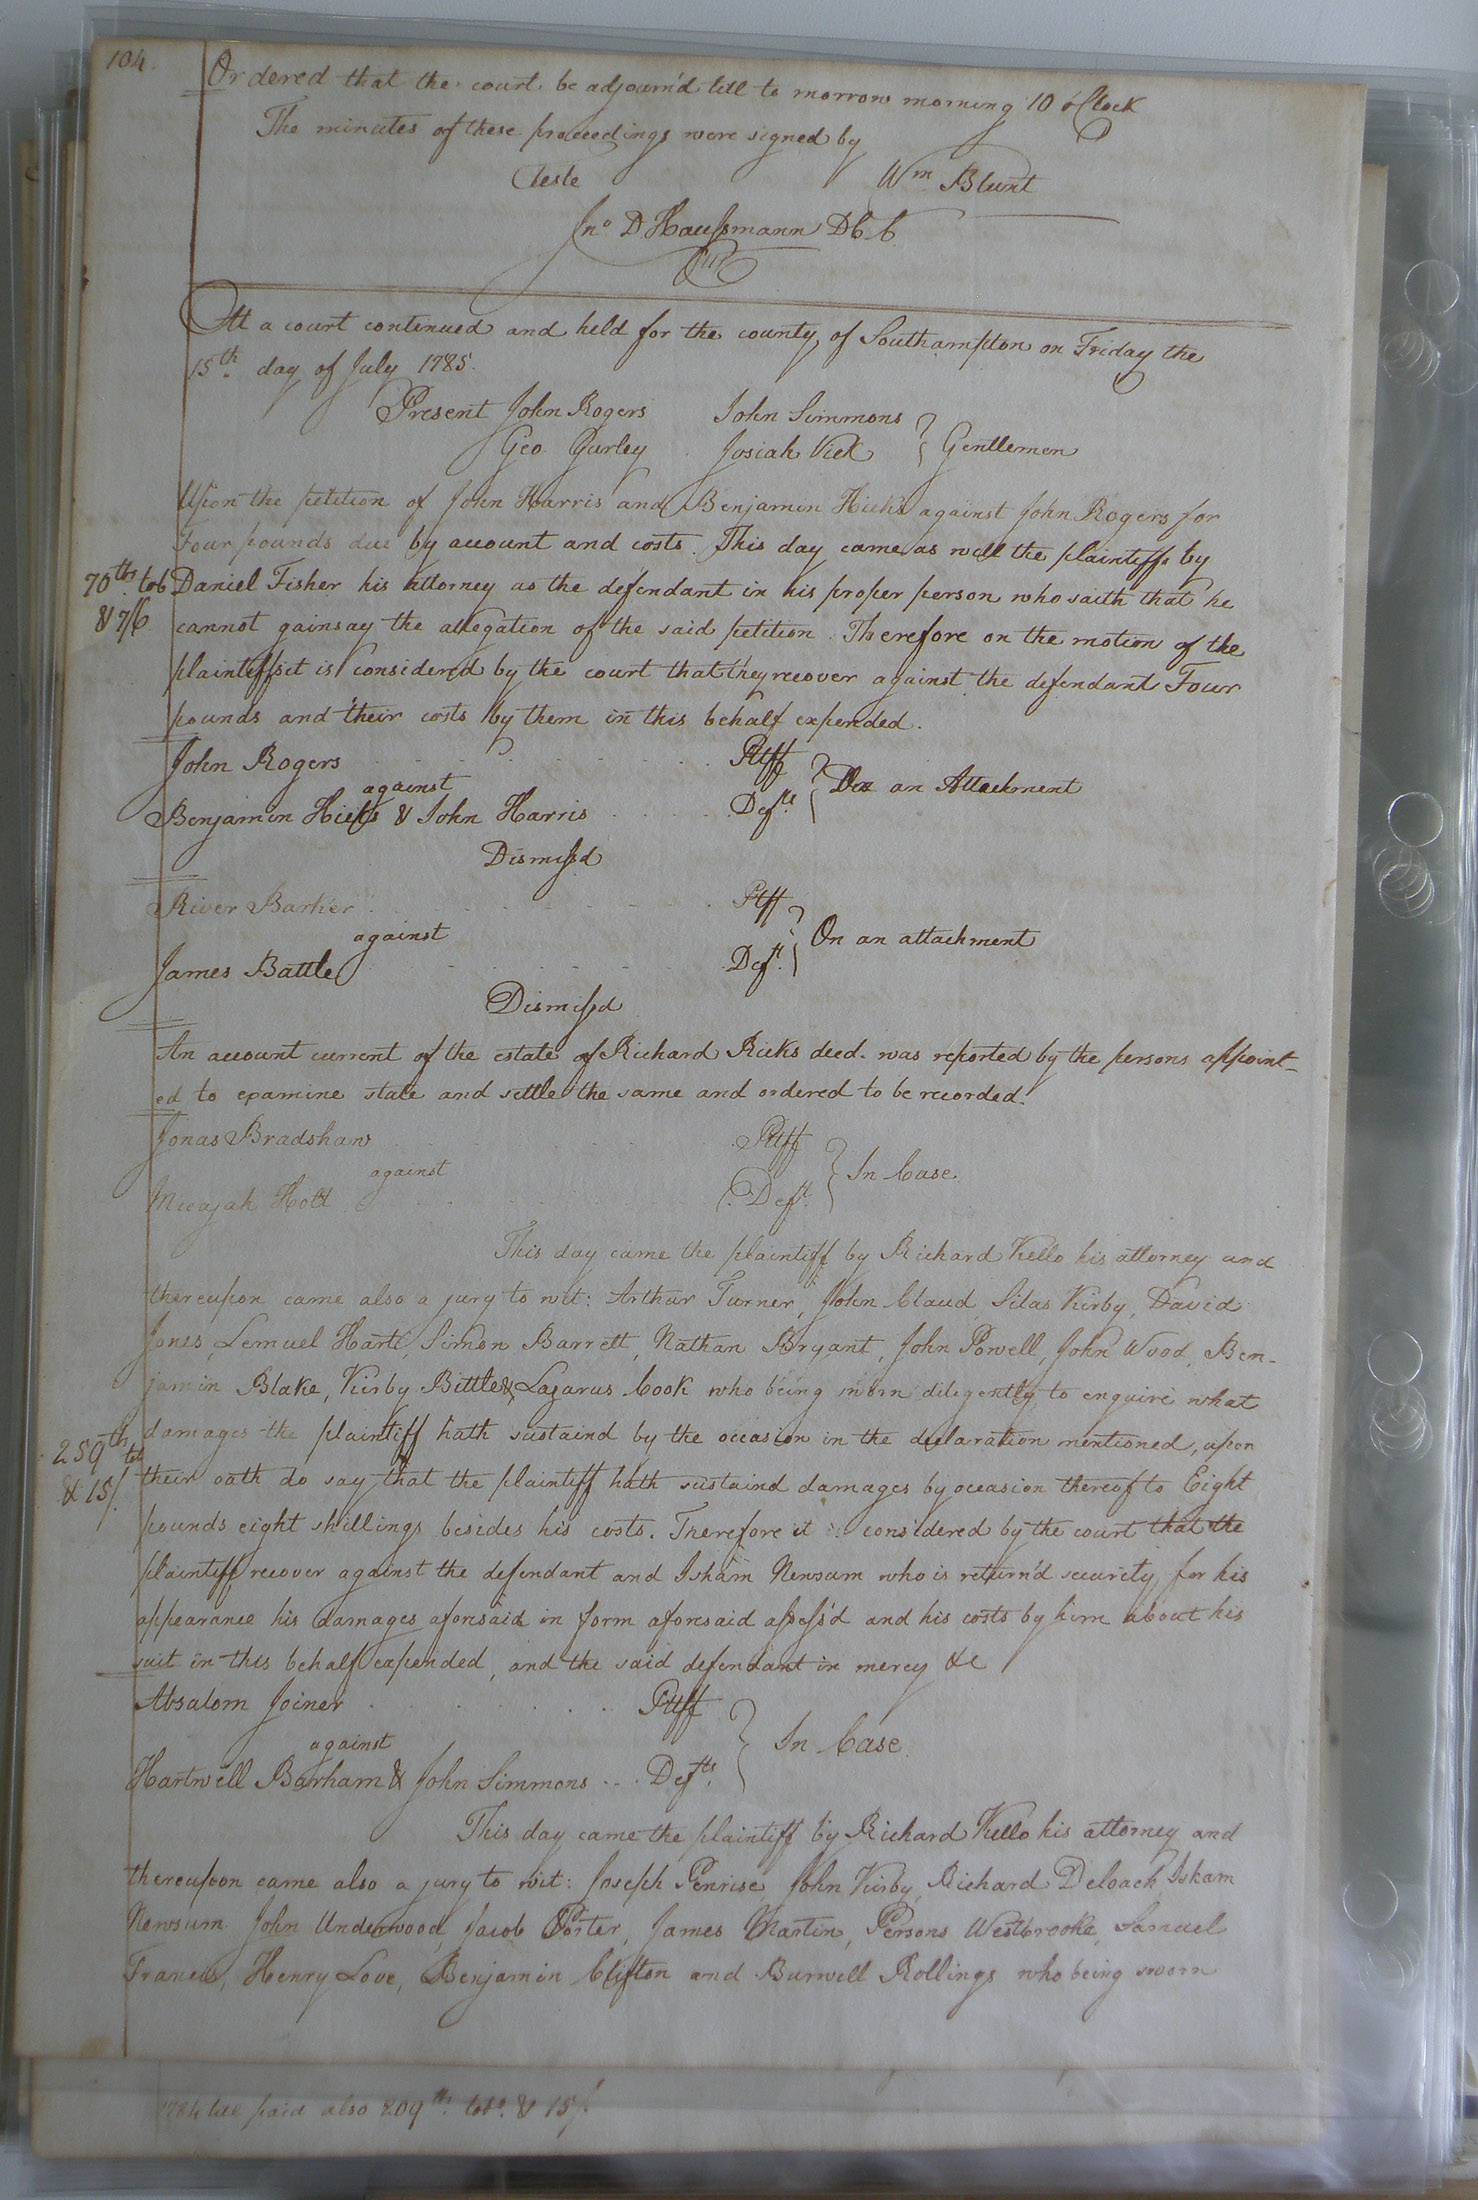 104.
Ordered that the court be adjourn'd till to morrow morning 10 oClock
The minutes of these proceedings were signed by
Teste Wm Blunt
Jno D Haussmann D C C
At a court continued and held for the county of Southampton on Friday the
15th day of July 1785.
Present John Rogers John Simmons
Geo Gurley Josiah Vick } Gentlemen
Upon the petition of John Harris and Benjamin Hicks against John Rogers for
Four pounds due by account and costs. This day came as well the plaintiffs by
70th tob Daniel Fisher his attorney as the defendant in his proper person who saith that he
& 7/6 cannot gainsay the allegation of the said petition. Therefore on the motion of the
plaintiffs it is considered by the court that they recover against the defendant Four
pounds and their costs by them in this behalf expended.
John Rogers Pltff
against } On an Attachment
Benjamin Hicks & John Harris Defts
Dismissd
River Barker Pltff
against } On an attachment
James Battle Deft.
Dismissd
An account current of the estate of Richard Ricks deed. was reported by the persons appoint-
ed to examine state and settle the same and ordered to be recorded.
Jonas Bradshaw Pltff
against } In Case
Micajah Holt Deft.
This day came the plaintiff by Richard Kello his attorney and
thereupon came also a jury to wit: Arthur Turner, John Claud, Silas Kirby, David
Jones, Lemuel Hart, Simon Barrett, Nathan Bryant, John Powell, John Wood, Ben-
jamin Blake, Kirby Bittle & Lazarus Cook who being sworn diligently to enquire what
damages the plaintiff hath sustaind by the occasion in the declaration mentioned, upon
259th tob their oath do say that the plaintiff hath sustaind damages by occasion thereof to Eight
& 15/. pounds eight shillings besides his costs. Therefore it is considered by the court that the
plaintiff recover against the defendant and Isham Newsum who is return'd security for his
appearance his damages aforesaid in form aforesaid assess'd and his costs by him about his
suit in this behalf expended, and the said defendant in mercy &c
Absalom Joiner Pltff
against } In Case
Hartwell Barham & John Simmons Defts.
This day came the plaintiff by Richard Kello his attorney and
thereupon came also a jury to wit: Joseph Penrise, John Kirby, Richard Deloach, Isham
Newsum John Underwood, Jacob Porter, James Martin, Persons Westbrooke, Samuel
Francis, Henry Love, Benjamin Clifton and Burwell Rollings who being sworn
1784 till paid also 209th tobo. & 15/.